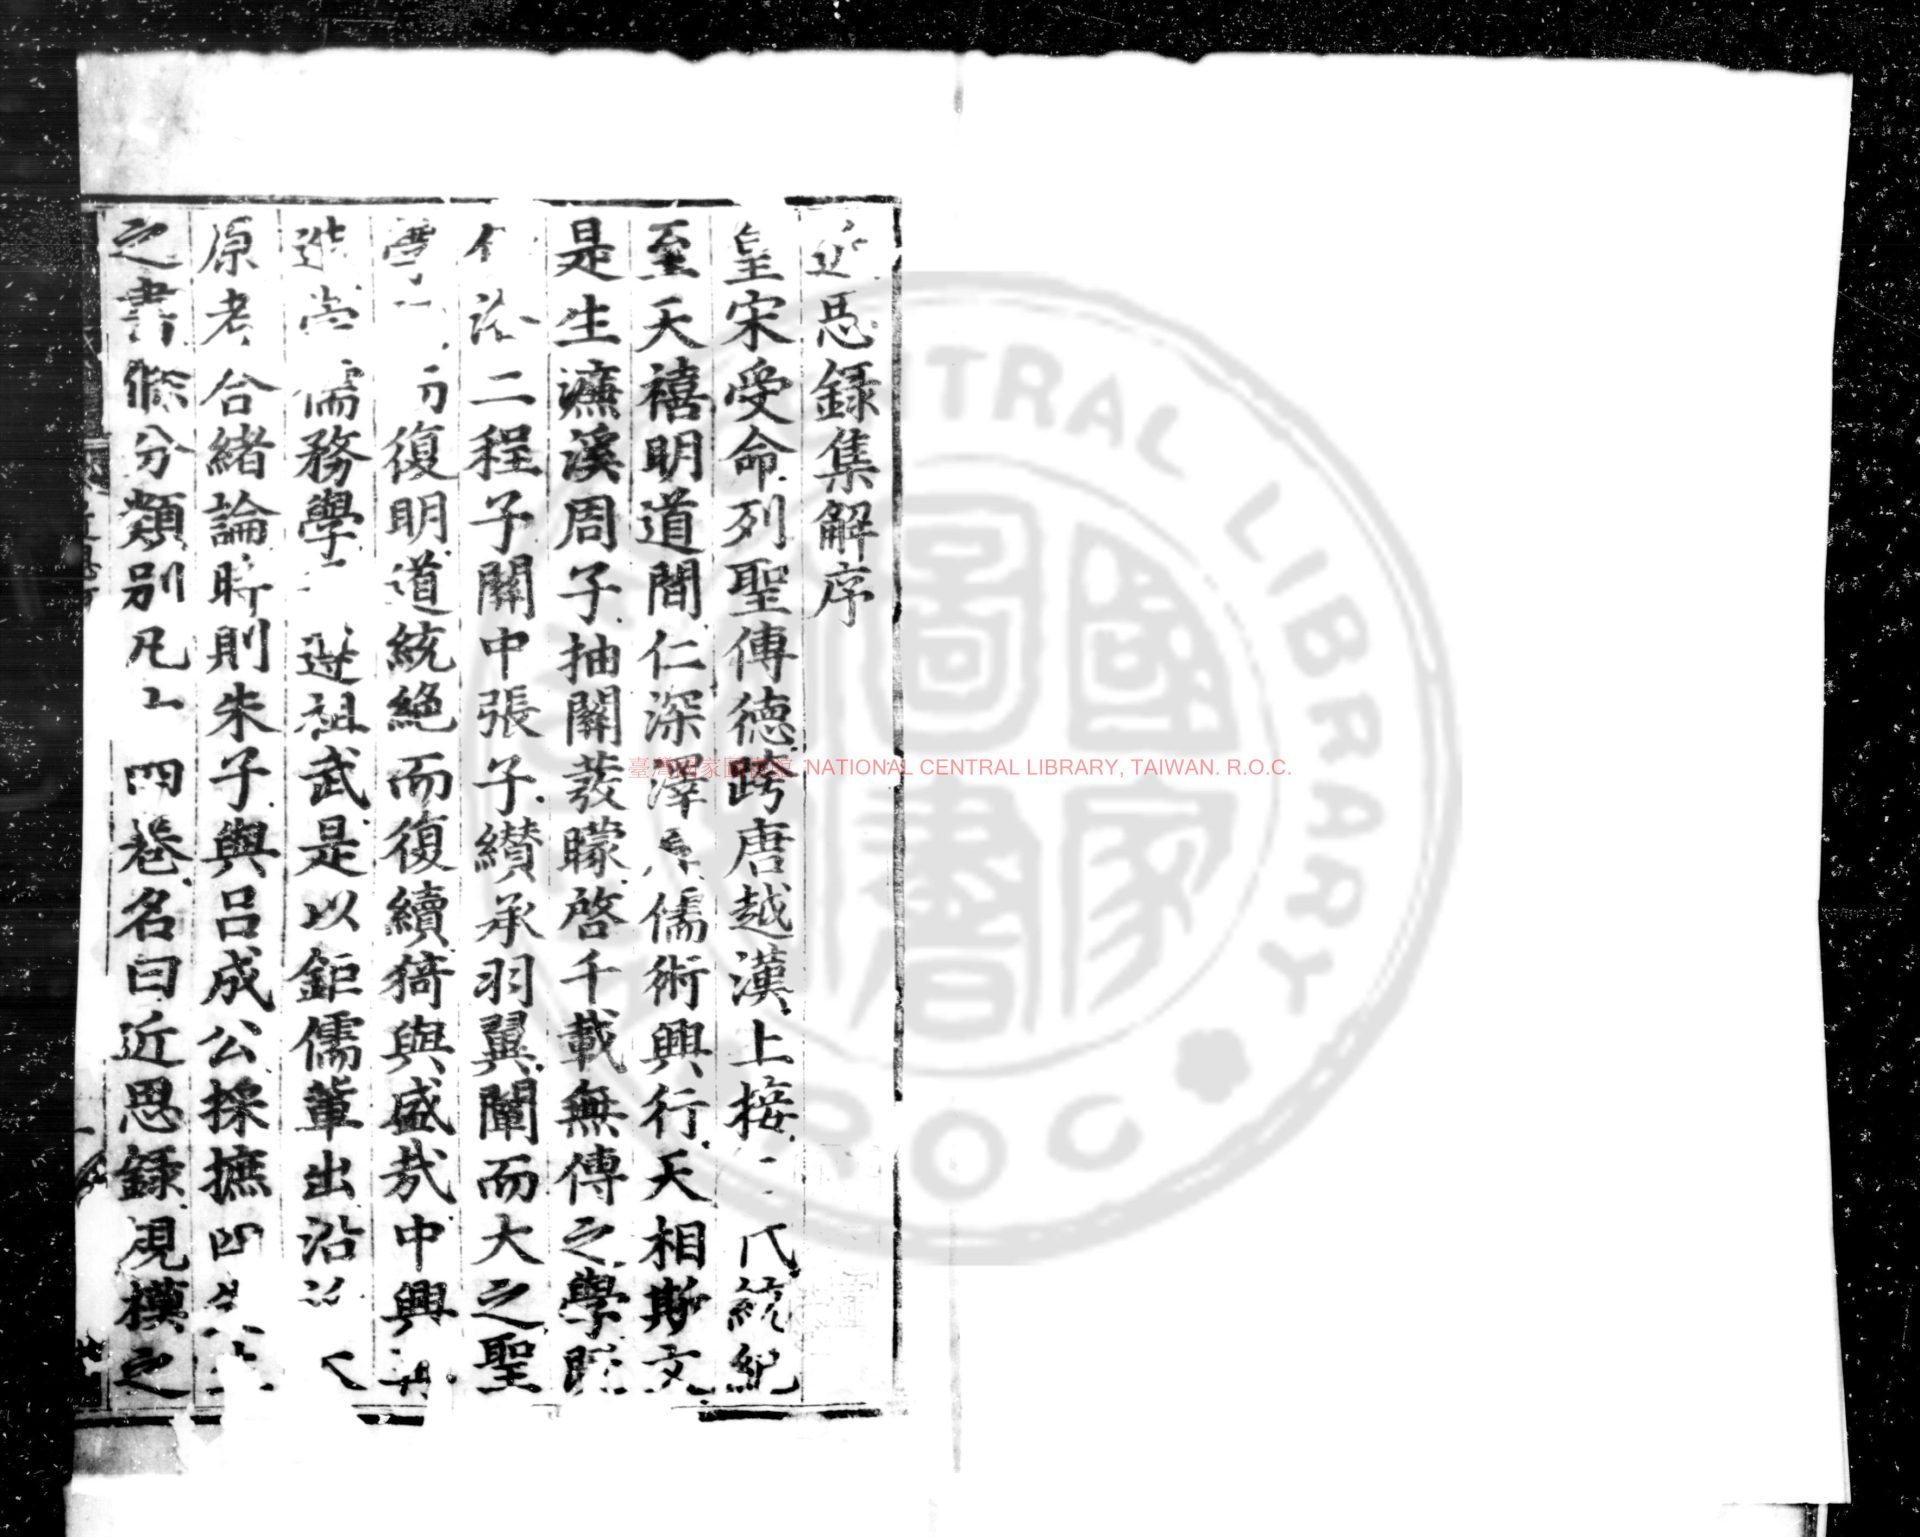 近思録集解序
皇宋受命列聖傳德跨唐越漢上接 代統紀
至天禧明道間仁深澤 儒術興行天相斯文
是生濂溪周子抽關發矇啓千載無傳之學既
洛二程子關中張子纘承羽翼闡而大之聖
學 復明道統絶而復續猗與盛㢤中興
造崇儒務學 遵祖武是以鉅儒輩出沿
原考合緒論時則朱子與吕成公採摭四先生
之書條分類别凡十四巻名曰近思録規模之
臺灣國家圖書館 NATIONAL CENTRAL LIBRARY, TAIWAN. R.O.C.
國家圖書
CENTRAL LIBRARY
ROC